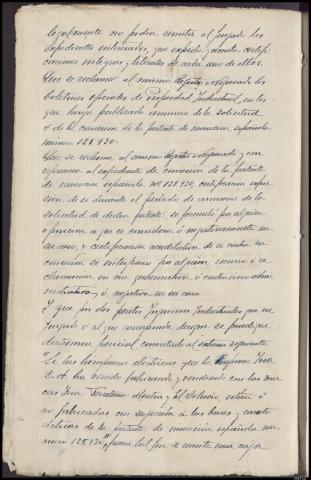 legalmente no podia remitir al Juzgado los
expedientes interesados, que expida y remita certifi-
caciones integras y literales de cada uno de ellos.
Que se reclame al mismo Registro o Negociado los
boletines oficiales de Propiedad Industrial, en los
que haya publicado anuncio de la solicitud
ó de la concesion de la patente de invencion española
numero 125.930.
Que se reclame al mismo Registro o Negociado y con
referencia al expediente de concesion de la patente
de invencion española nº 125.930, certificacion expre-
sion de si durante el periodo de anuncio de la
solicitud de dicha patente se formuló por alguien
oposicion a que se concediera ó negativamente en
su caso, y certificación acreditativa de si contra su
concesion se interpuso por alguien recurso ó re-
clamacion en via gubernativa ó contencioso admi-
nistrativa, ó negativa en su caso
Y que por dos peritos Ingenieros Industriales que en
Juzgado o al que corresponda designe se practique
dictamen pericial concretado al extremo siguiente
"Si las lamparas electricas que la empresa
S.A. ha venido fabricando y vendiendo con las mar-
cas están ó
no fabricadas con sujecion á las bases y caracte-
risticas de la patente de invención española nu-
mero 125.930", para tal fin se remite una caja
NMG